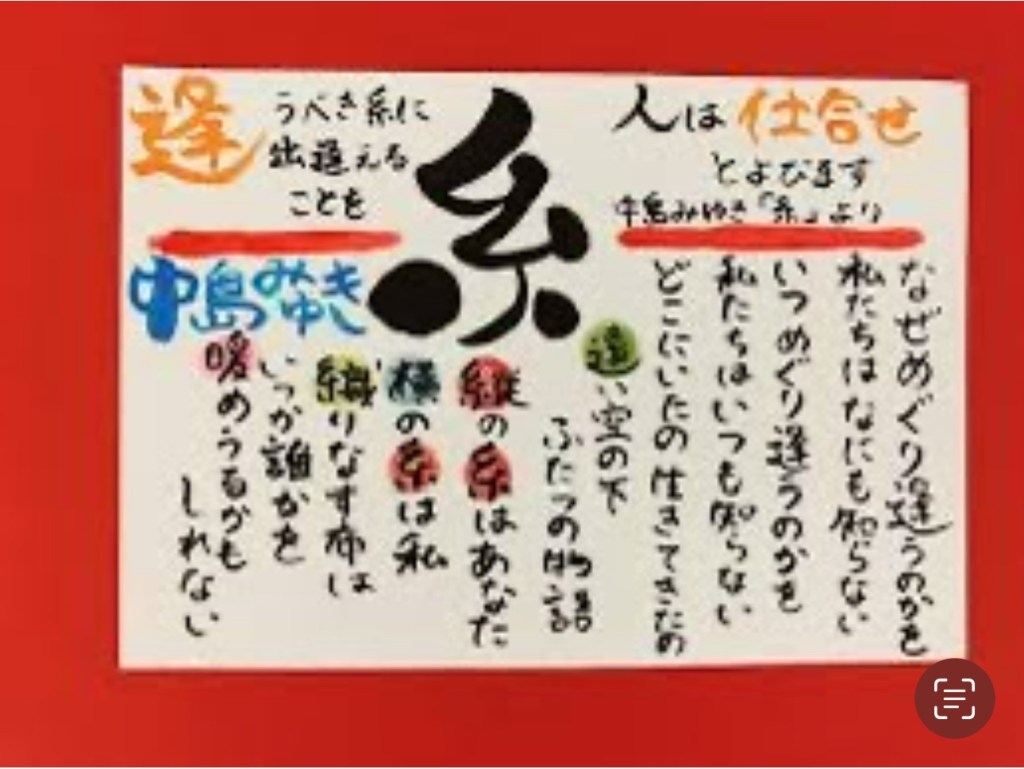 糸
逢うべき糸に
出逢える
ことを
人は仕合せ
とよびます
中島みゆき「糸」より
なぜめぐり逢うのかを
私たちはなにも知らない
いつめぐり逢うのかを
私たちはいつも知らない
どこにいたの生きてきたの
遠い空の下
ふたつの物語
縦の糸はあなた
横の糸は私
織りなす布は
いつか誰かを
暖めうるかも
しれない
中島みゆき